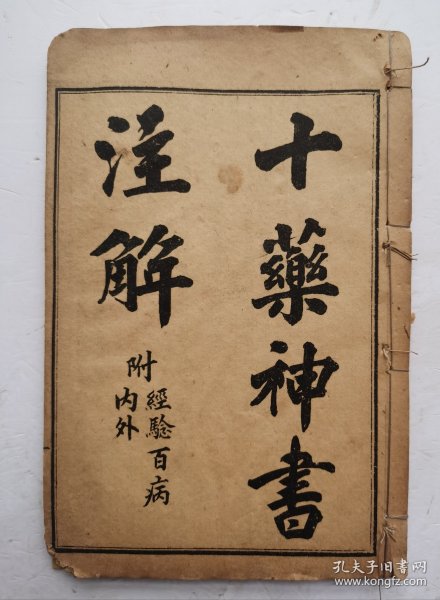 十藥神書
注解
附經驗百病
內外
孔夫子旧书网
www.kongfz.com